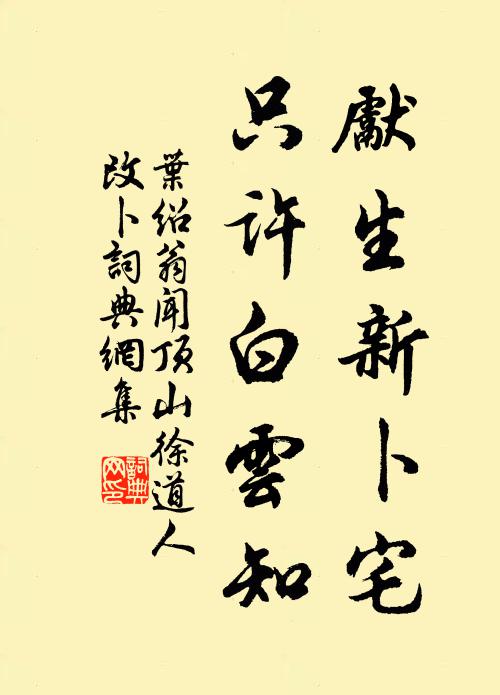 獻生新卜宅
只許白雲知
葉紹翁聞頂山徐道人
改卜詞典網集
詞典
网印